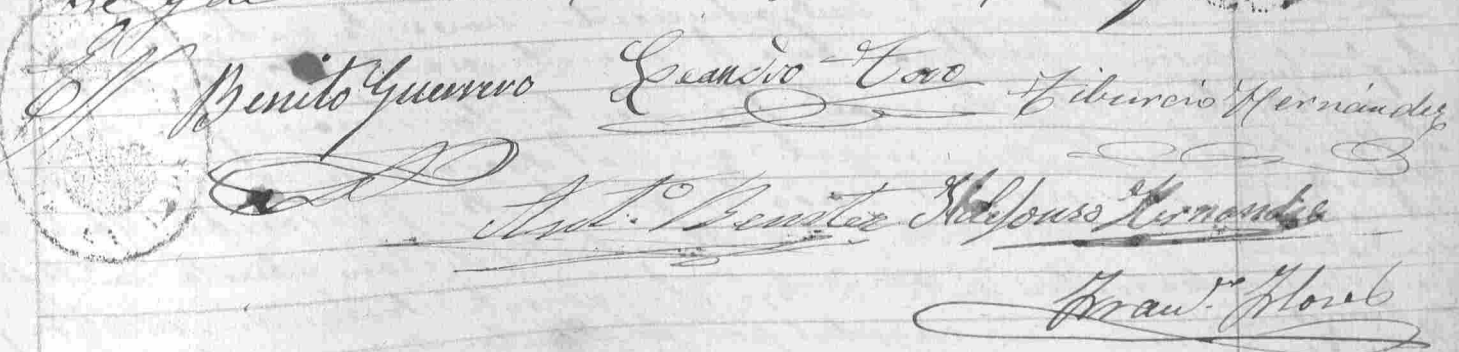 Benito Guerrero Leandro Toro Tiburcio Hernández
Ant.º Benitez Ildefonso Hernandez
Flores